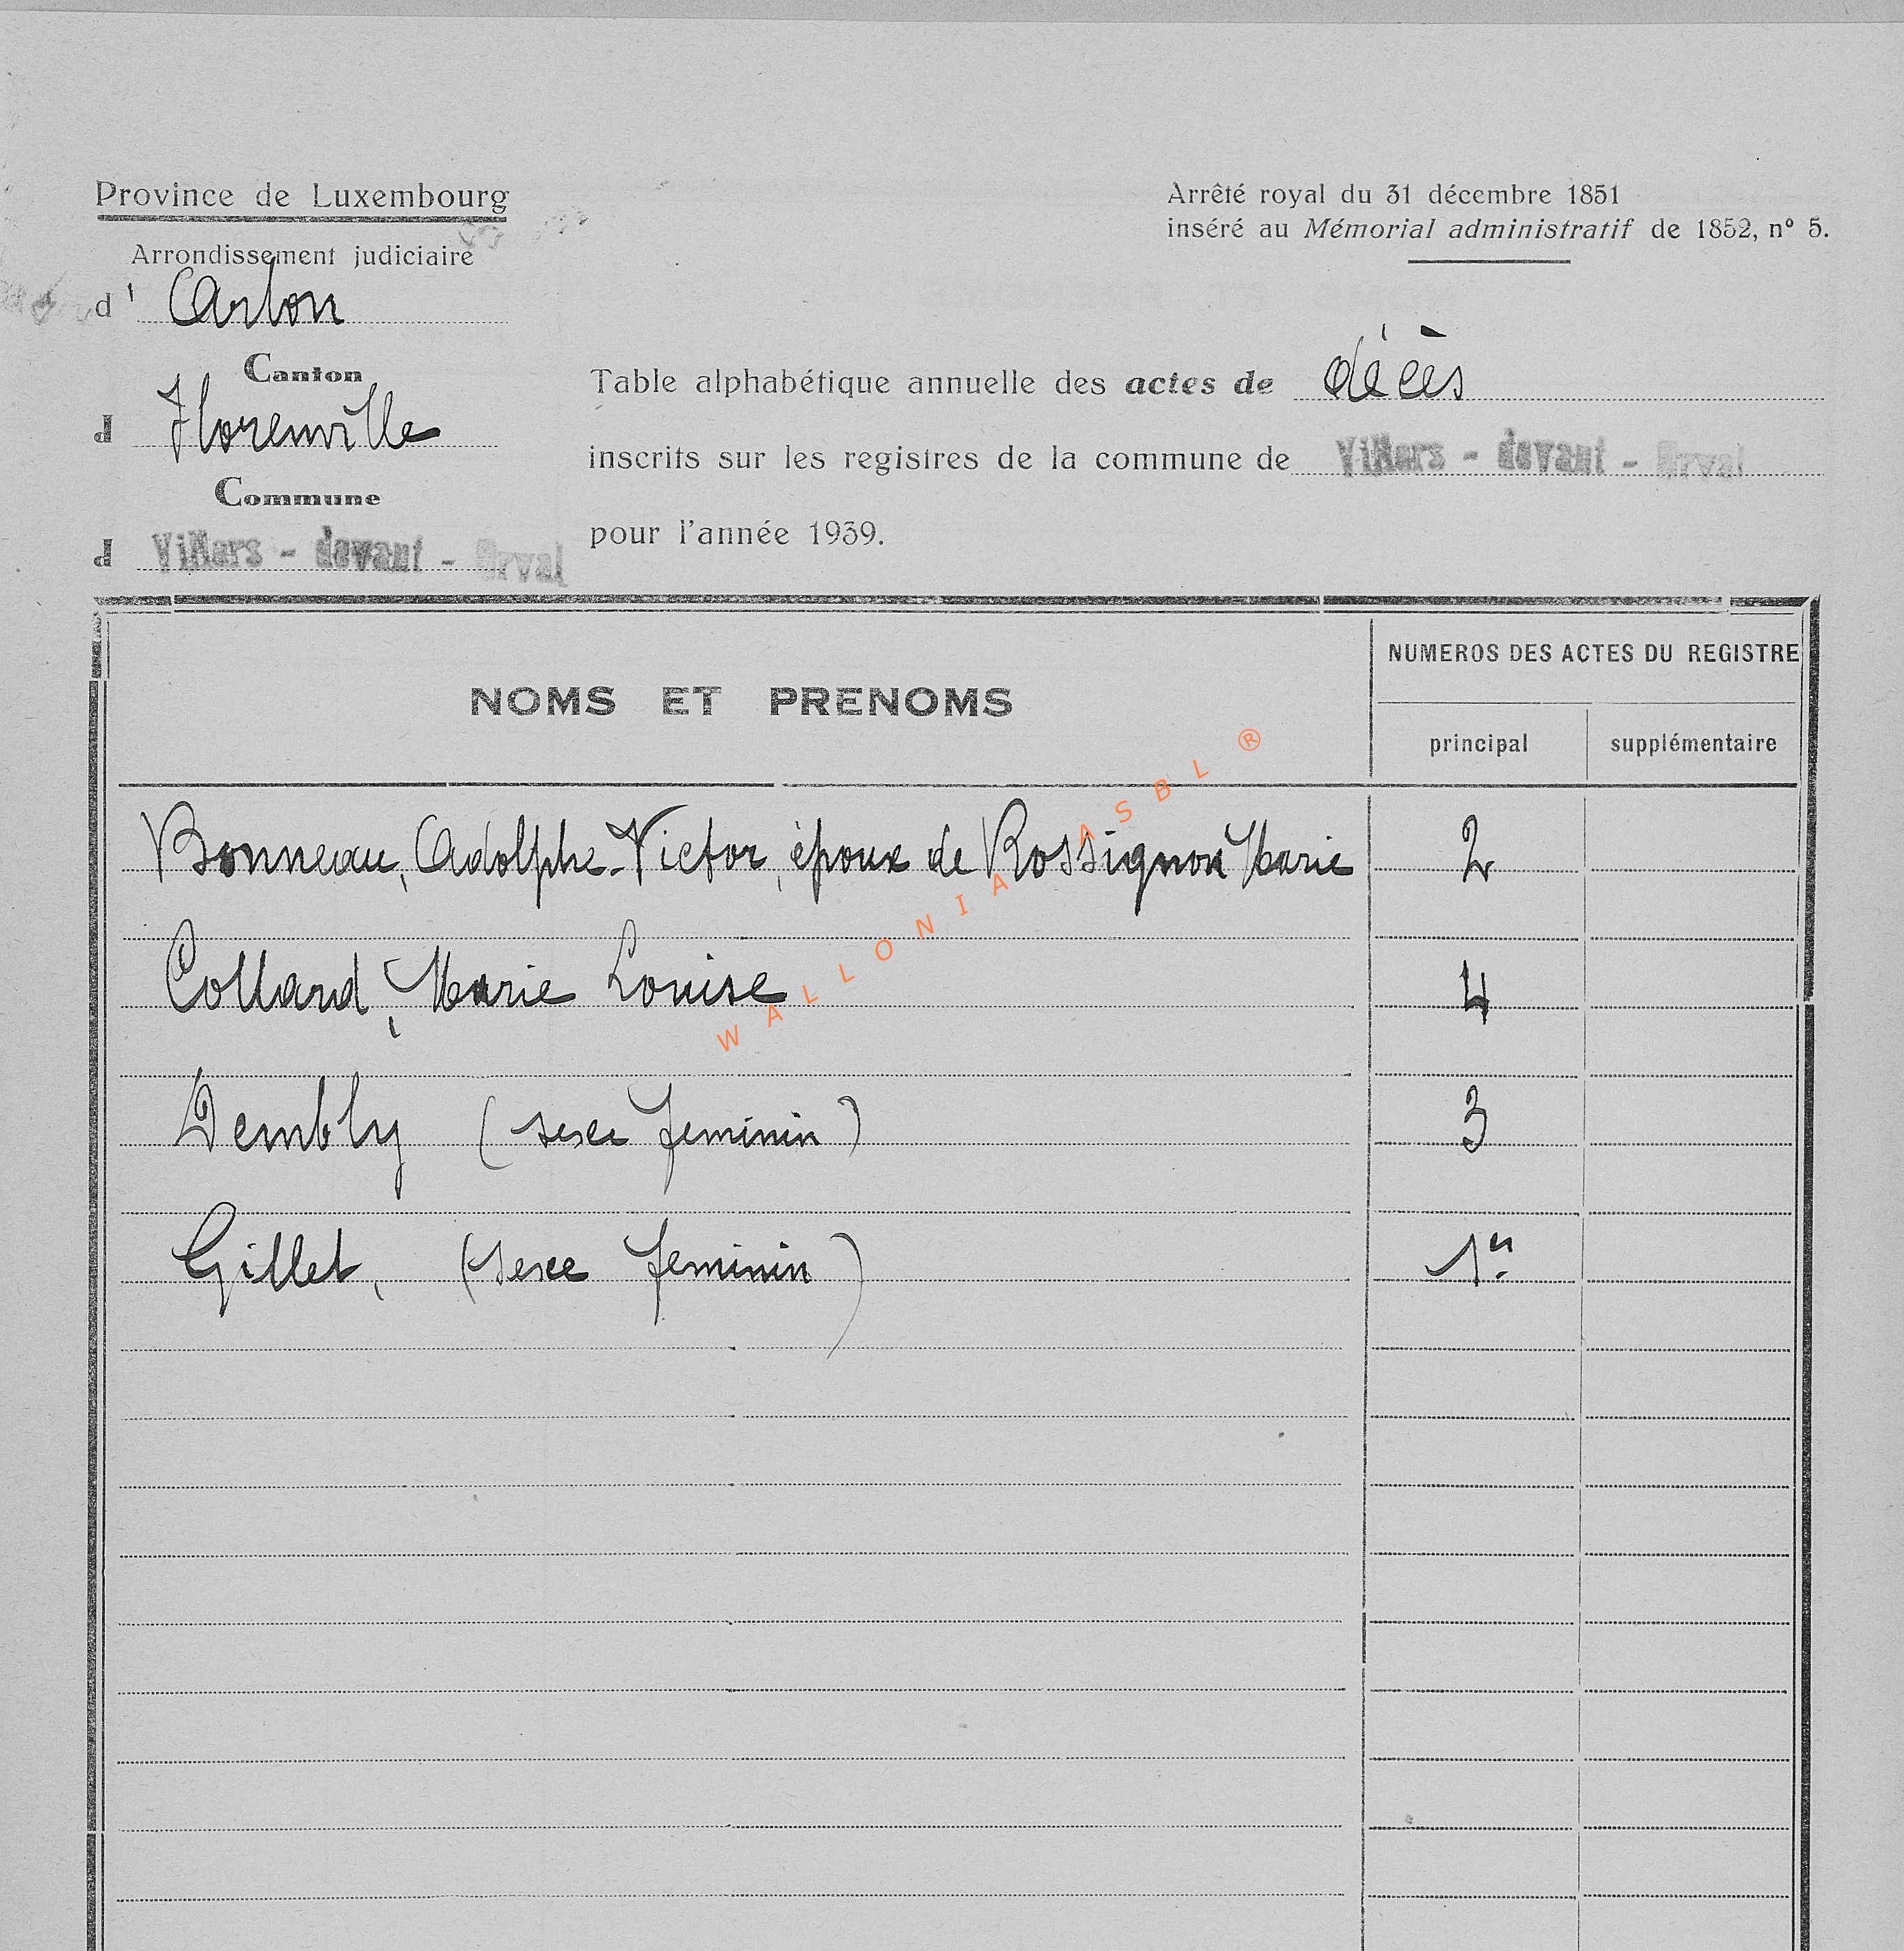 Province de Luxembourg
Arrondissement judiciaire
d' Arlon
Canton
d Florenville
Commune
d Villers - devant - Orval
Arrêté royal du 31 décembre 1851
inséré au Mémorial administratif de 1852, nº 5.
Table alphabétique annuelle des actes de décès
inscrits sur les registres de la commune de Villers - devant - Orval
pour l'année 1939.
NOMS ET PRENOMS
NUMEROS DES ACTES DU REGISTRE
principal supplémentaire
Bonneau, Adolphe-Victor, époux de Rossignon Marie 2
Collard, Marie Louise 4
Dembly (sexe feminin) 3
Gillet, (sexe feminin) 1er
WALLONIA ASBL ®